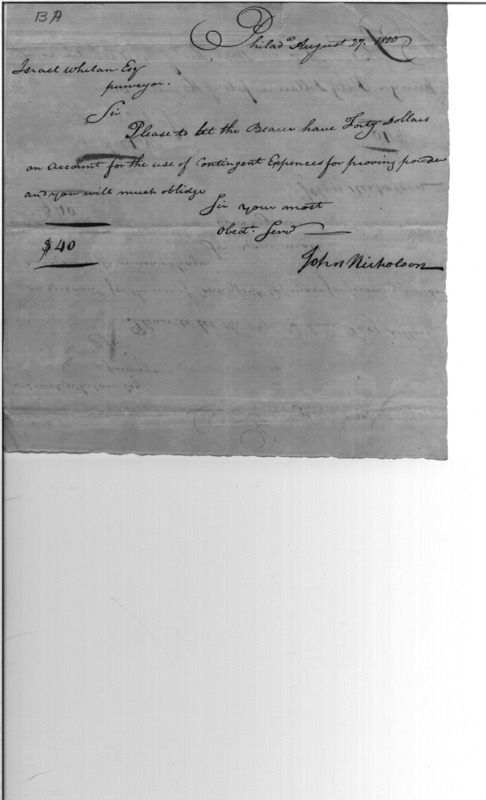 BA
Philad.a August 27. 1800
Israel Whelan Esq
purveyor.
Sir
Please to let the Bearer have Forty Dollars
on account for the use of Contingent Expences for proving powder
and you will much oblidge
Sir your most
Obed.t Serv.t
$40
John Nicholson